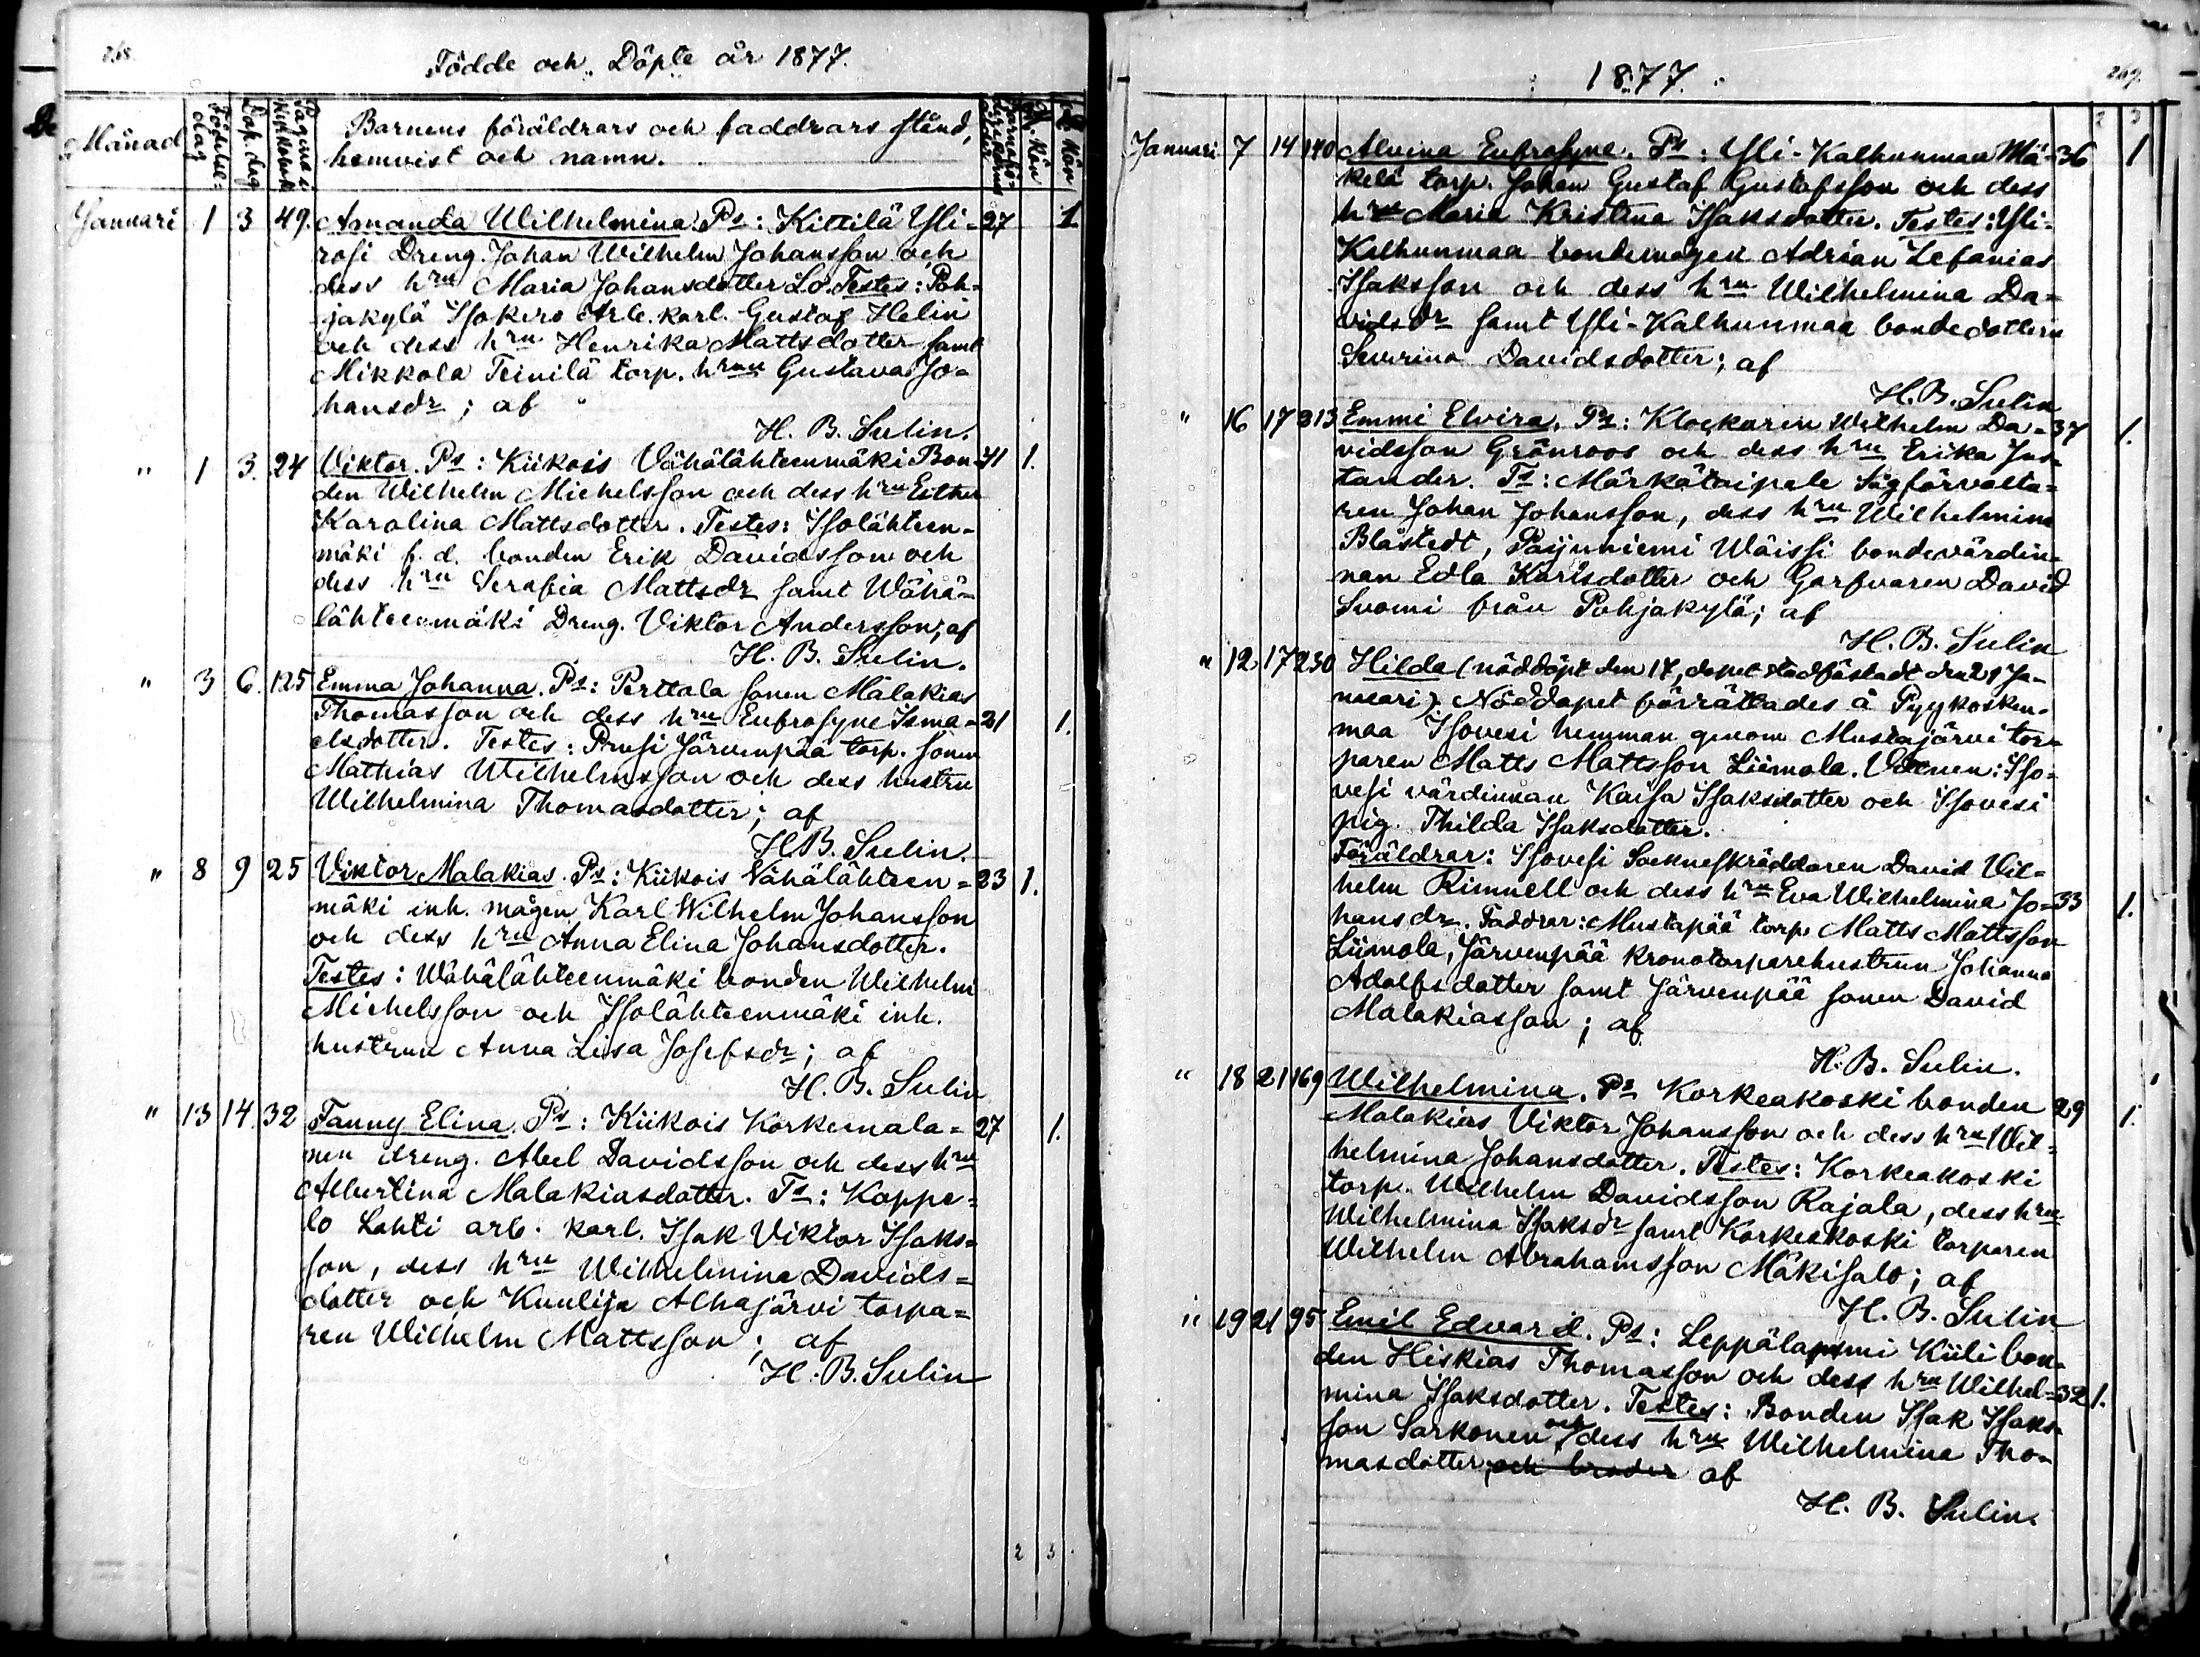 268.
Födde och Döpte år 1877.
Månad
Födelse-dag
Döp. dag
Pagina i Kyrkobok
Barnens föräldrars och faddrars stånd,
hemvist och namn.
Januari 1 3 49. Amanda Wilhelmina. Ps: Kittilä Yli- 27 1
rosi Dreng. Johan Wilhelm Johansson och
dess hru Maria Johansdotter Lo. Testes: Poh-
jakylä Isokero Arb. karl. Gustaf Helin
och dess hru Henrika Mattsdotter samt
Mikkola Teinilä torp. hrun Gustava Jo-
hansdr; af
H. B. Sulin.
" 1 3. 24 Viktor. Ps: Kiikois Vähälähteenmäki Bon- 41 1.
den Wilhelm Michelsson och dess hru Esther
Karolina Mattsdotter. Testes: Isolähteen-
mäki f. d. bonden Erik Davidsson och
dess hru Serafia Mattsdr samt Wähä-
lähteenmäki Dreng. Viktor Andersson; af
H. B. Sulin.
" 3 6. 125 Emma Johanna. Ps: Perttala sonen Malakias
Thomasson och dess hru Eufrosyne Isma- 21 1.
elsdotter. Testes: Prusi Järvenpää torp. sonen
Mathias Wilhelmsson och dess hustru
Wilhelmina Thomasdotter; af
H. B. Sulin.
" 8 9 25 Viktor Malakias. Ps: Kiikois Vähälähteen- 23 1.
mäki inh. mågen Karl Wilhelm Johansson
och dess hru Anna Elina Johansdotter.
Testes: Wähälähteenmäki bonden Wilhelm
Michelsson och Isolähteenmäki inh.
hustrun Anna Lisa Josefsdr; af
H. B. Sulin
" 13 14. 32 Fanny Elina. Ps: Kiikois Korkemala- 27 1.
nen dreng. Abel Davidsson och dess hru
Albertina Malakiasdotter. Ts: Koppe-
lo Lahti arb. karl. Isak Viktor Isaks-
son, dess hru Wilhelmina Davids-
dotter och Kuulija Alhajärvi torpa-
ren Wilhelm Mattsson; af
H. B. Sulin
2 3
1877.
269.
2 3
Januari 7 14 140 Alvina Eufrosyne. Ps: Yli-Kalhunmaa Mä- 36 1
kelä torp. Johan Gustaf Gustafsson och dess
hru Maria Kristina Isaksdotter. Testes: Yli-
Kalhunmaa bondemågen Adrian Zefanias
Isaksson och dess hru Wilhelmina Da-
vidsdr samt Yli-Kalhunmaa bondedottern
Severina Davidsdotter; af
H. B. Sulin
" 16 17 313 Emmi Elvira. Ps: Klockaren Wilhelm Da- 37 1.
vidsson Grönroos och dess hru Erika Jus-
tander. Ts: Märkätaipale Sågförvalta-
ren Johan Johansson, dess hru Wilhelmina
Blåstedt, Paijuniemi Wäissi bondevärdin-
nan Edla Karlsdotter och Garfvaren David
Suomi från Pohjakylä; af
H. B. Sulin
" 12 17 230 Hilda (nöddöpt den 17, dopet stadfästadt den 21 Ja-
nuari). Nöddopet förrättades å Pyykosken-
maa Isovesi hemman genom Mustajärvi tor-
paren Matts Mattsson Liimola. Vittnen: Iso-
vesi värdinnan Kaisa Isaksdotter och Isovesi
pig. Thilda Isaksdotter.
Föräldrar: Isovesi Sockneskräddaren David Vil-
helm Rimnell och dess hru Eva Wilhelmina Jo- 33 1.
hansdr. Faddrar: Mustapää torp. Matts Mattsson
Liimola, Järvenpää kronotorparehustrun Johanna
Adolfsdotter samt Järvenpää sonen David
Malakiasson; af
H. B. Sulin.
" 18 21 169 Wilhelmina. Ps Korkeakoski bonden 29 1.
Malakias Viktor Johansson och dess hru Wil-
helmina Johansdotter. Testes: Korkeakoski
torp. Wilhelm Davidsson Rajala, dess hru
Wilhelmina Isaksdr samt Korkeakoski torparen
Wilhelm Abrahamsson Mäkisalo; af
H. B. Sulin
" 19 21 95 Emil Edvard. Ps: Leppälammi Kiili bon-
den Hiskias Thomasson och dess hru Wilhel- 32 1.
mina Isaksdotter. Testes: Bonden Isak Isaks-
son Sarkonen och dess hru Wilhelmina Tho-
masdotter; och broder af
H. B. Sulin.